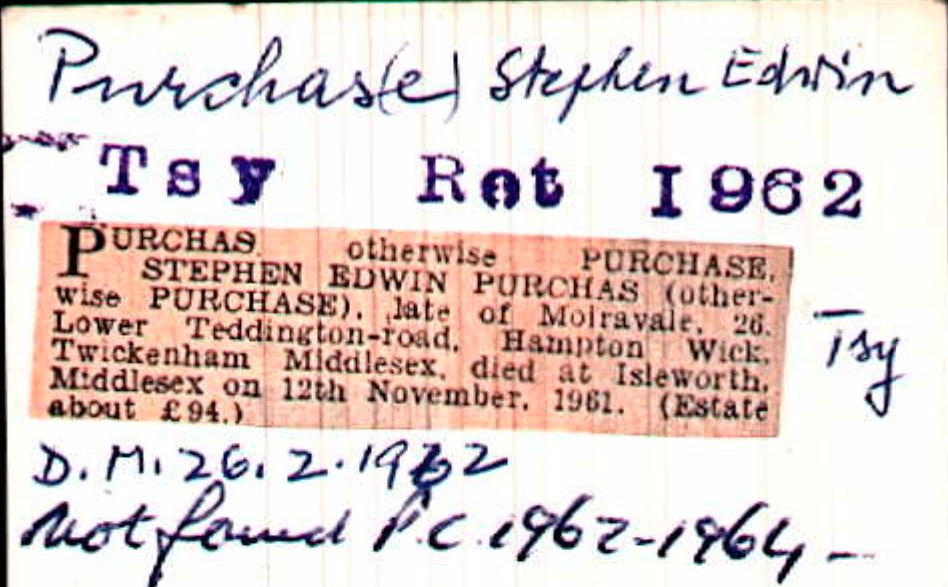 Purchas(e) Stephen Edwin
Tsy Ret 1962
PURCHAS otherwise PURCHASE,
STEPHEN EDWIN PURCHAS (other-
wise PURCHASE), late of Moiravale, 26,
Lower Teddington-road, Hampton Wick,
Twickenham Middlesex, died at Isleworth,
Middlesex on 12th November, 1961. (Estate
about £94.)
Tsy
D.M. 26.2.1962
Not found P.C. 1962-1964 -